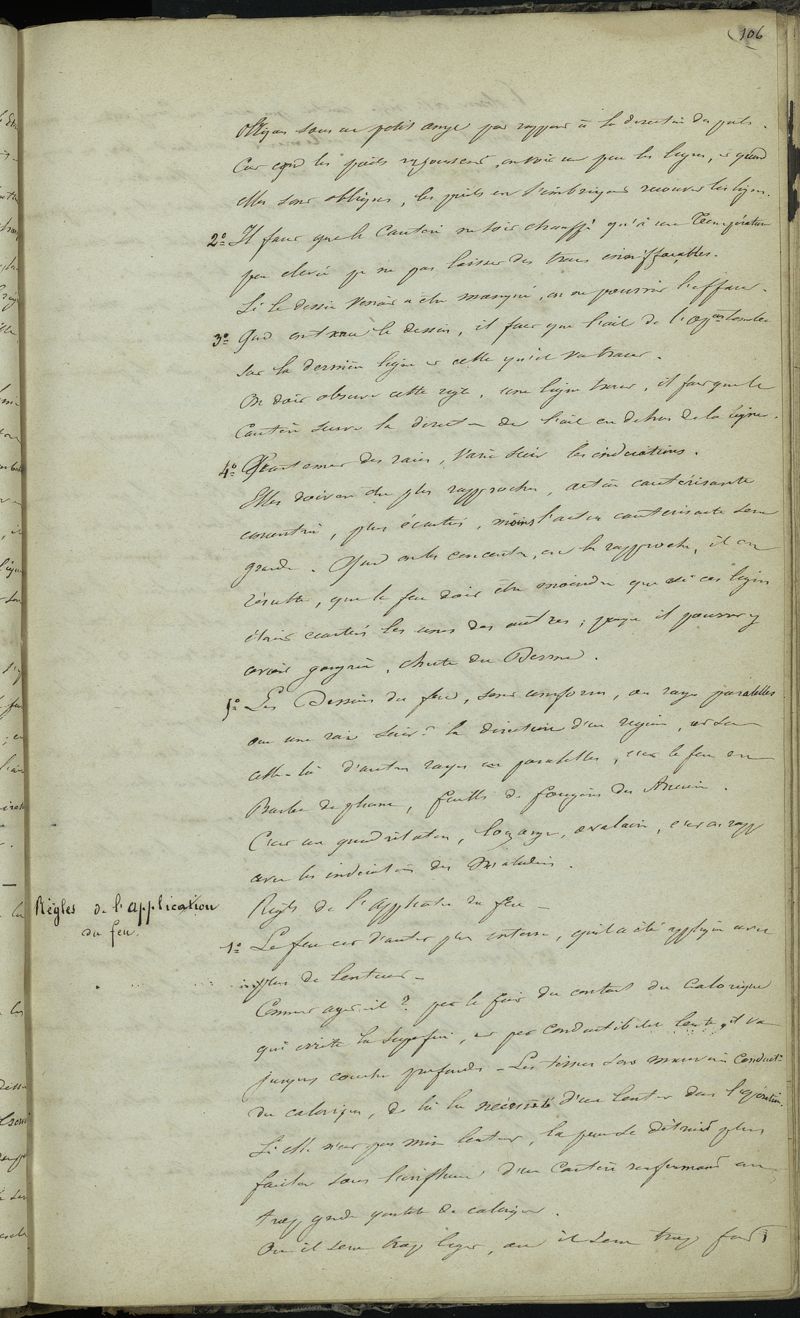 106
obliques sous un petit angle par rapport à la direction des poils.
Car qnd les poils repoussent, on voit un peu les lignes, et quand
elles sont obliques, les poils en s'imbriquant recouvrent les lignes.
2º Il faut que le Cautère ne soit chauffé qu'à une Température
peu élevée pr ne pas laisser des traces ineffaçables.
Si le dessin venait à être manqué, on ne pourrait l'effacer.
3º Qnd on trace le dessin, il faut que l'œil de l'opeur tombe
sur la dernière ligne et celle qu'il va tracer.
On doit observer cette règle, une ligne tracée, il faut que le
Cautère suive la direct de l'œil en dehors de la ligne.
4º des raies, varie suiv les indications.
Elles doivent être plus rapprochées, action cautérisante
concentrée, plus écartées, moins l'action cautérisante sera
grande. Qnd on les concentre, on les rapproche, il en
résulte, que le feu doit être moindre que si ces lignes
étaient écartées les unes des autres; parce qu'il pourrait y
avoir gangrène, chute du Derme.
5º Les Dessins du feu, sont uniformes, en raies parallèles
ou une raie suivt la direction d'une région, et sur
celle-là d'autres rayes en parallèles, c'est le feu en
Barbe de plume, feuille de fougère des Anciens.
C'est un quadrilatère, lozange, ovalaire, c'est en rapp
avec les indications des Maladies.
Règles de l'application
du feu.
Règles de l'Application du feu —
1º Le feu est d'autant plus intense, qu'il a été appliqué avec
plus de lenteur —
Comment agit-il? par le fait du contact du Calorique
qui excite la superficie, et par conductibilité lente, il va
jusqu'aux couches profondes — Les tissus sont mauvais conduct
du calorique, de là la nécessité d'une lenteur dans l'opération.
Si elle n'est pas mise lenteur, la peau se détruit plus
facilem sous l'influence d'un Cautère renfermant une
trop grde quantité de calorique.
Ou il sera trop léger, ou il sera trop fort